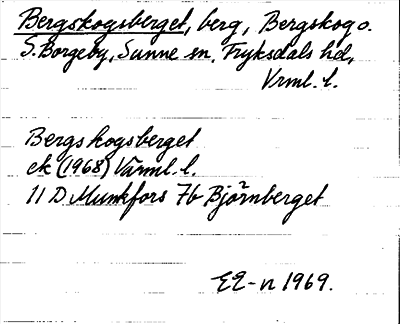 Bergskogsberget, berg, Bergskog o.
S. Borgeby, Sunne sn, Fryksdals hd,
Vrml. l.
Bergskogsberget
ek (1968) Värml. l.
11 D Munkfors 7b Björnberget
1969.